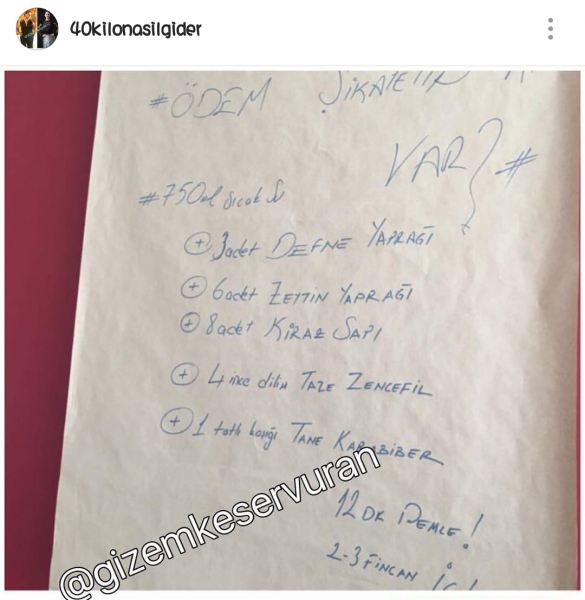 40kilonasilgider
#ÖDEM ŞİKAYETİN
VAR? #
#750ml sıcak su
+ 3 adet DEFNE YAPRAĞI
+ 6 adet ZEYTİN YAPRAĞI
+ 8 adet KİRAZ SAPI
+ 4 ince dilim TAZE ZENCEFİL
+ 1 tatlı kaşığı TANE KARABİBER
12 DK DEMLE!
2-3 FİNCAN İÇ!
@gizemkeservuran